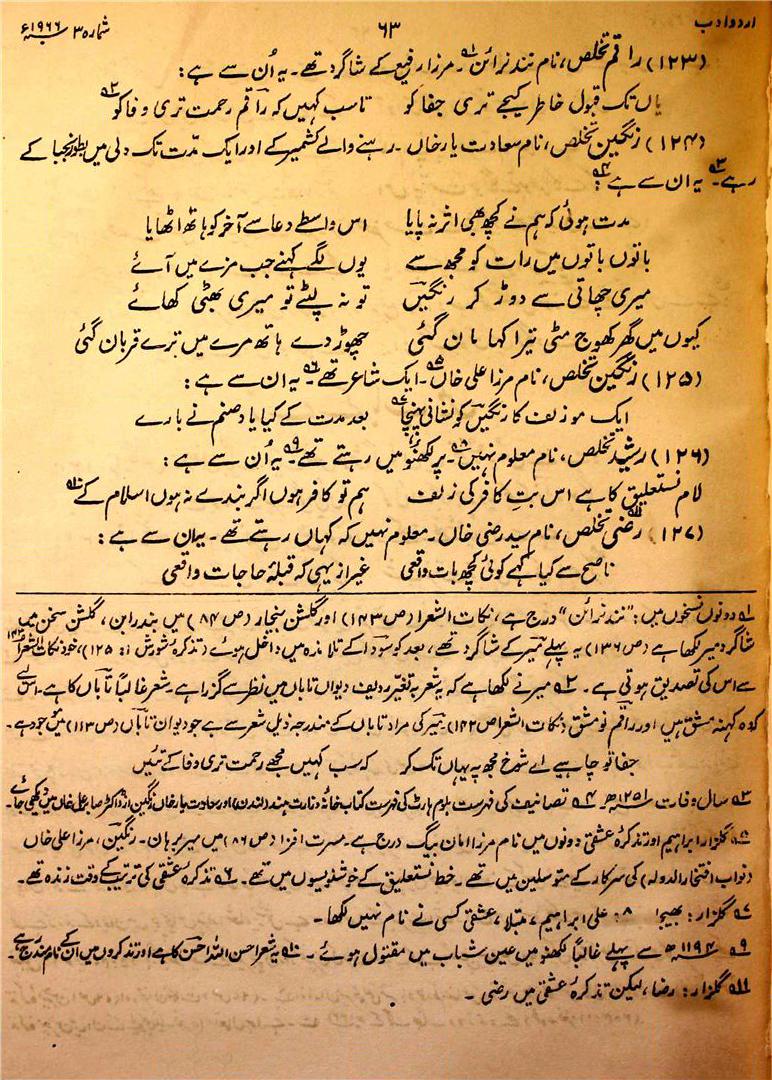 اردو ادب ۶۳ شمارہ ۳ سنہ ۱۹۶۶ء
(۱۲۳) راقم تخلص، نام نند نرائن ۱؎ ۔ مرزا رفیع کے شاگرد تھے ۔ یہ اُن سے ہے :
یاں تک قبول خاطر کیجے تری جفا کو تا سب کہیں کہ راقم رحمت تری وفا کو ۲؎
(۱۲۴) رنگین تخلص، نام سعادت یار خاں ۔ رہنے والے کشمیر کے اور ایک مدّت تک دلی میں بطور نجبا کے
رہے ۳؎ ۔ یہ ان سے ہے ۴؎ :
مدت ہوئی کہ ہم نے کچھ بھی اثر نہ پایا اس واسطے دعا سے آخر کو ہاتھ اٹھایا
باتوں باتوں میں رات کو مجھ سے یوں لگے کہنے جب مزے میں آئے
میری چھاتی سے دوڑ کر رنگیں تو نہ لپٹے تو میری بھٹی کھائے
کیوں میں گھر کھوج مٹی تیرا کہا مان گئی چھوڑ دے ہاتھ مرے میں ترے قربان گئی
(۱۲۵) رنگین تخلص، نام مرزا علی خاں ۵؎ ۔ ایک شاعر تھے ۶؎ ۔ یہ ان سے ہے :
ایک مو زلف کا رنگیں کو نشانی پہنچا ۷؎ بعد مدت کے کیا یاد صنم نے بارے
(۱۲۶) رشید تخلص، نام معلوم نہیں ۸؎ ۔ پر لکھنؤ میں رہتے تھے ۹؎ ۔ یہ اُن سے ہے :
لام نستعلیق کا ہے اس بتِ کافر کی زلف ہم تو کافر ہوں اگر بندے نہ ہوں اسلام کے ۱۰؎
(۱۲۷) رضی ۱۱؎ تخلص، نام سید رضی خاں ۔ معلوم نہیں کہ کہاں رہتے تھے ۔ یہ ان سے ہے :
ناصح سے کیا کہے کوئی کچھ بات واقعی غیر از یہی کہ قبلۂ حاجات واقعی
۱؎ دونوں نسخوں میں : "نند نرائن" درج ہے، نکات الشعرا (ص ۱۴۳) اور گلشن بیخار (ص ۸۴) میں بندرابن، گلشن سخن میں
شاگرد میر لکھا ہے (ص ۱۳۶) یہ پہلے میر کے شاگرد تھے، بعد کو سودا کے تلامذہ میں داخل ہوئے (تذکرۂ شورش ۱ : ۱۲۵)، خود نکات الشعرا
سے اس کی تصدیق ہوتی ہے ۔ ۲؎ میر نے لکھا ہے کہ یہ شعر بہ تغیّر ردیف دیوان تاباں میں نظر سے گزرا ہے ۔ شعر غالباً تاباں کا ہے ۔ اس لیے
کہ وہ کہنہ مشق ہیں اور راقم نو مشق (نکات الشعرا ص ۱۴۲) ۔ میر کی مراد تاباں کے مندرجہ ذیل شعر سے ہے جو دیوان تاباں (ص ۱۱۳) میں موجود ہے ۔
جفا تو چاہیے اے شوخ مجھ پہ یہاں تک کر کہ سب کہیں مجھے رحمت تری وفا کے تئیں
۳؎ سال وفات ۱۲۵۱ھ ۔ ۴؎ تصانیف کی فہرست بلوم ہارٹ کی فہرست کتاب خانۂ وزارت ہند (لندن) اور سعادت یار خاں رنگین از ڈاکٹر صابر علی خاں میں دیکھی جائے ۔
۵؎ گلزار ابراہیم اور تذکرۂ عشقی دونوں میں نام مرزا امان بیگ درج ہے ۔ مسرت افزا (ص ۸۶) میں میر برہان ۔ رنگین، مرزا علی خاں
(نواب افتخار الدولہ) کی سرکار کے متوسلین میں تھے ۔ خط نستعلیق کے خوشنویسوں میں تھے ۔ ۶؎ تذکرۂ عشقی کی ترتیب کے وقت زندہ تھے ۔
۷؎ گلزار : بھیجا ۸ : علی ابراہیم، مبتلا، عشقی کسی نے نام نہیں لکھا ۔
۹؎ ۱۱۹۴ھ سے پہلے غالباً لکھنؤ میں عین شباب میں مقتول ہوئے ۔ ۱۰؎ یہ شعر احسن اللہ احسن کا ہے اور تذکروں میں ان کے نام مندرج ہے ۔
۱۱؎ گلزار : رضا، لیکن تذکرۂ عشقی میں رضی ۔